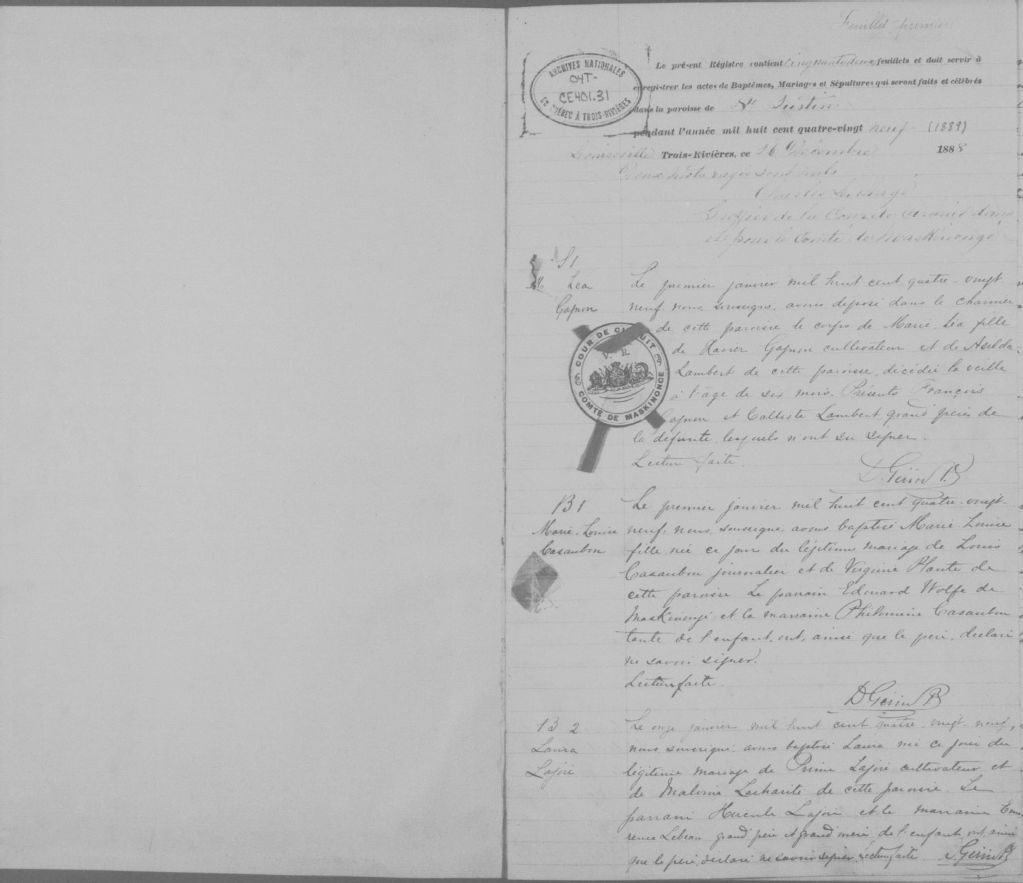 Feuillet premier
Le présent Régistre contient Cinquante deux feuillets et doit servir à
enregistrer les actes de Baptêmes, Mariages et Sépultures qui seront faits et célébrés
dans la paroisse de St Justin
pendant l'année mil huit cent quatre-vingt neuf - (1889)
Louiseville Trois-Rivières, ce 26 Décembre 1888
Charles
Greffier de la Cour de circuit dans
et pour le Comté de Maskinongé
ARCHIVES NATIONALES
04T-
CE401.31
DU QUÉBEC À TROIS-RIVIÈRES
S1
Léa
Gagnon
Le premier janvier mil huit cent quatre-vingt
neuf, nous soussigné, avons déposé dans le charnier
de cette paroisse le corps de Marie Léa fille
de Xavier Gagnon cultivateur et de Asilda
Lambert de cette paroisse, décédée la veille
à l'âge de six mois. Présents François
Gagnon et Calixte Lambert grand pères de
la défunte, lesquels n'ont su signer.
Lecture faite.
D Gérin P
COUR DE CIRCUIT
V. R.
COMTÉ DE MASKINONGE
B1
Marie-Louise
Casaubon
Le premier janvier mil huit cent quatre-vingt
neuf, nous, soussigné, avons baptisé Marie Louise
fille née ce jour du légitime mariage de Louis
Casaubon journalier et de Virginie Plante de
cette paroisse. Le parrain Edouard Wolfe de
Maskinongé et la marraine Philomène Casaubon
tante de l'enfant, ont, ainsi que le père, déclaré
ne savoir signer.
Lecture faite.
D Gérin P
B 2
Laura
Lajoie
Le onze janvier mil huit cent quatre-vingt-neuf,
nous soussigné avons baptisé Laura née ce jour du
légitime mariage de Prime Lajoie cultivateur et
de Malvina Lachante de cette paroisse. Le
parrain Hercule Lajoie et la marraine Eme
rence Lebeau grand père et grand'mère de l'enfant, ont ainsi
que le père, déclaré ne savoir signer. Lecture faite D. Gérin P